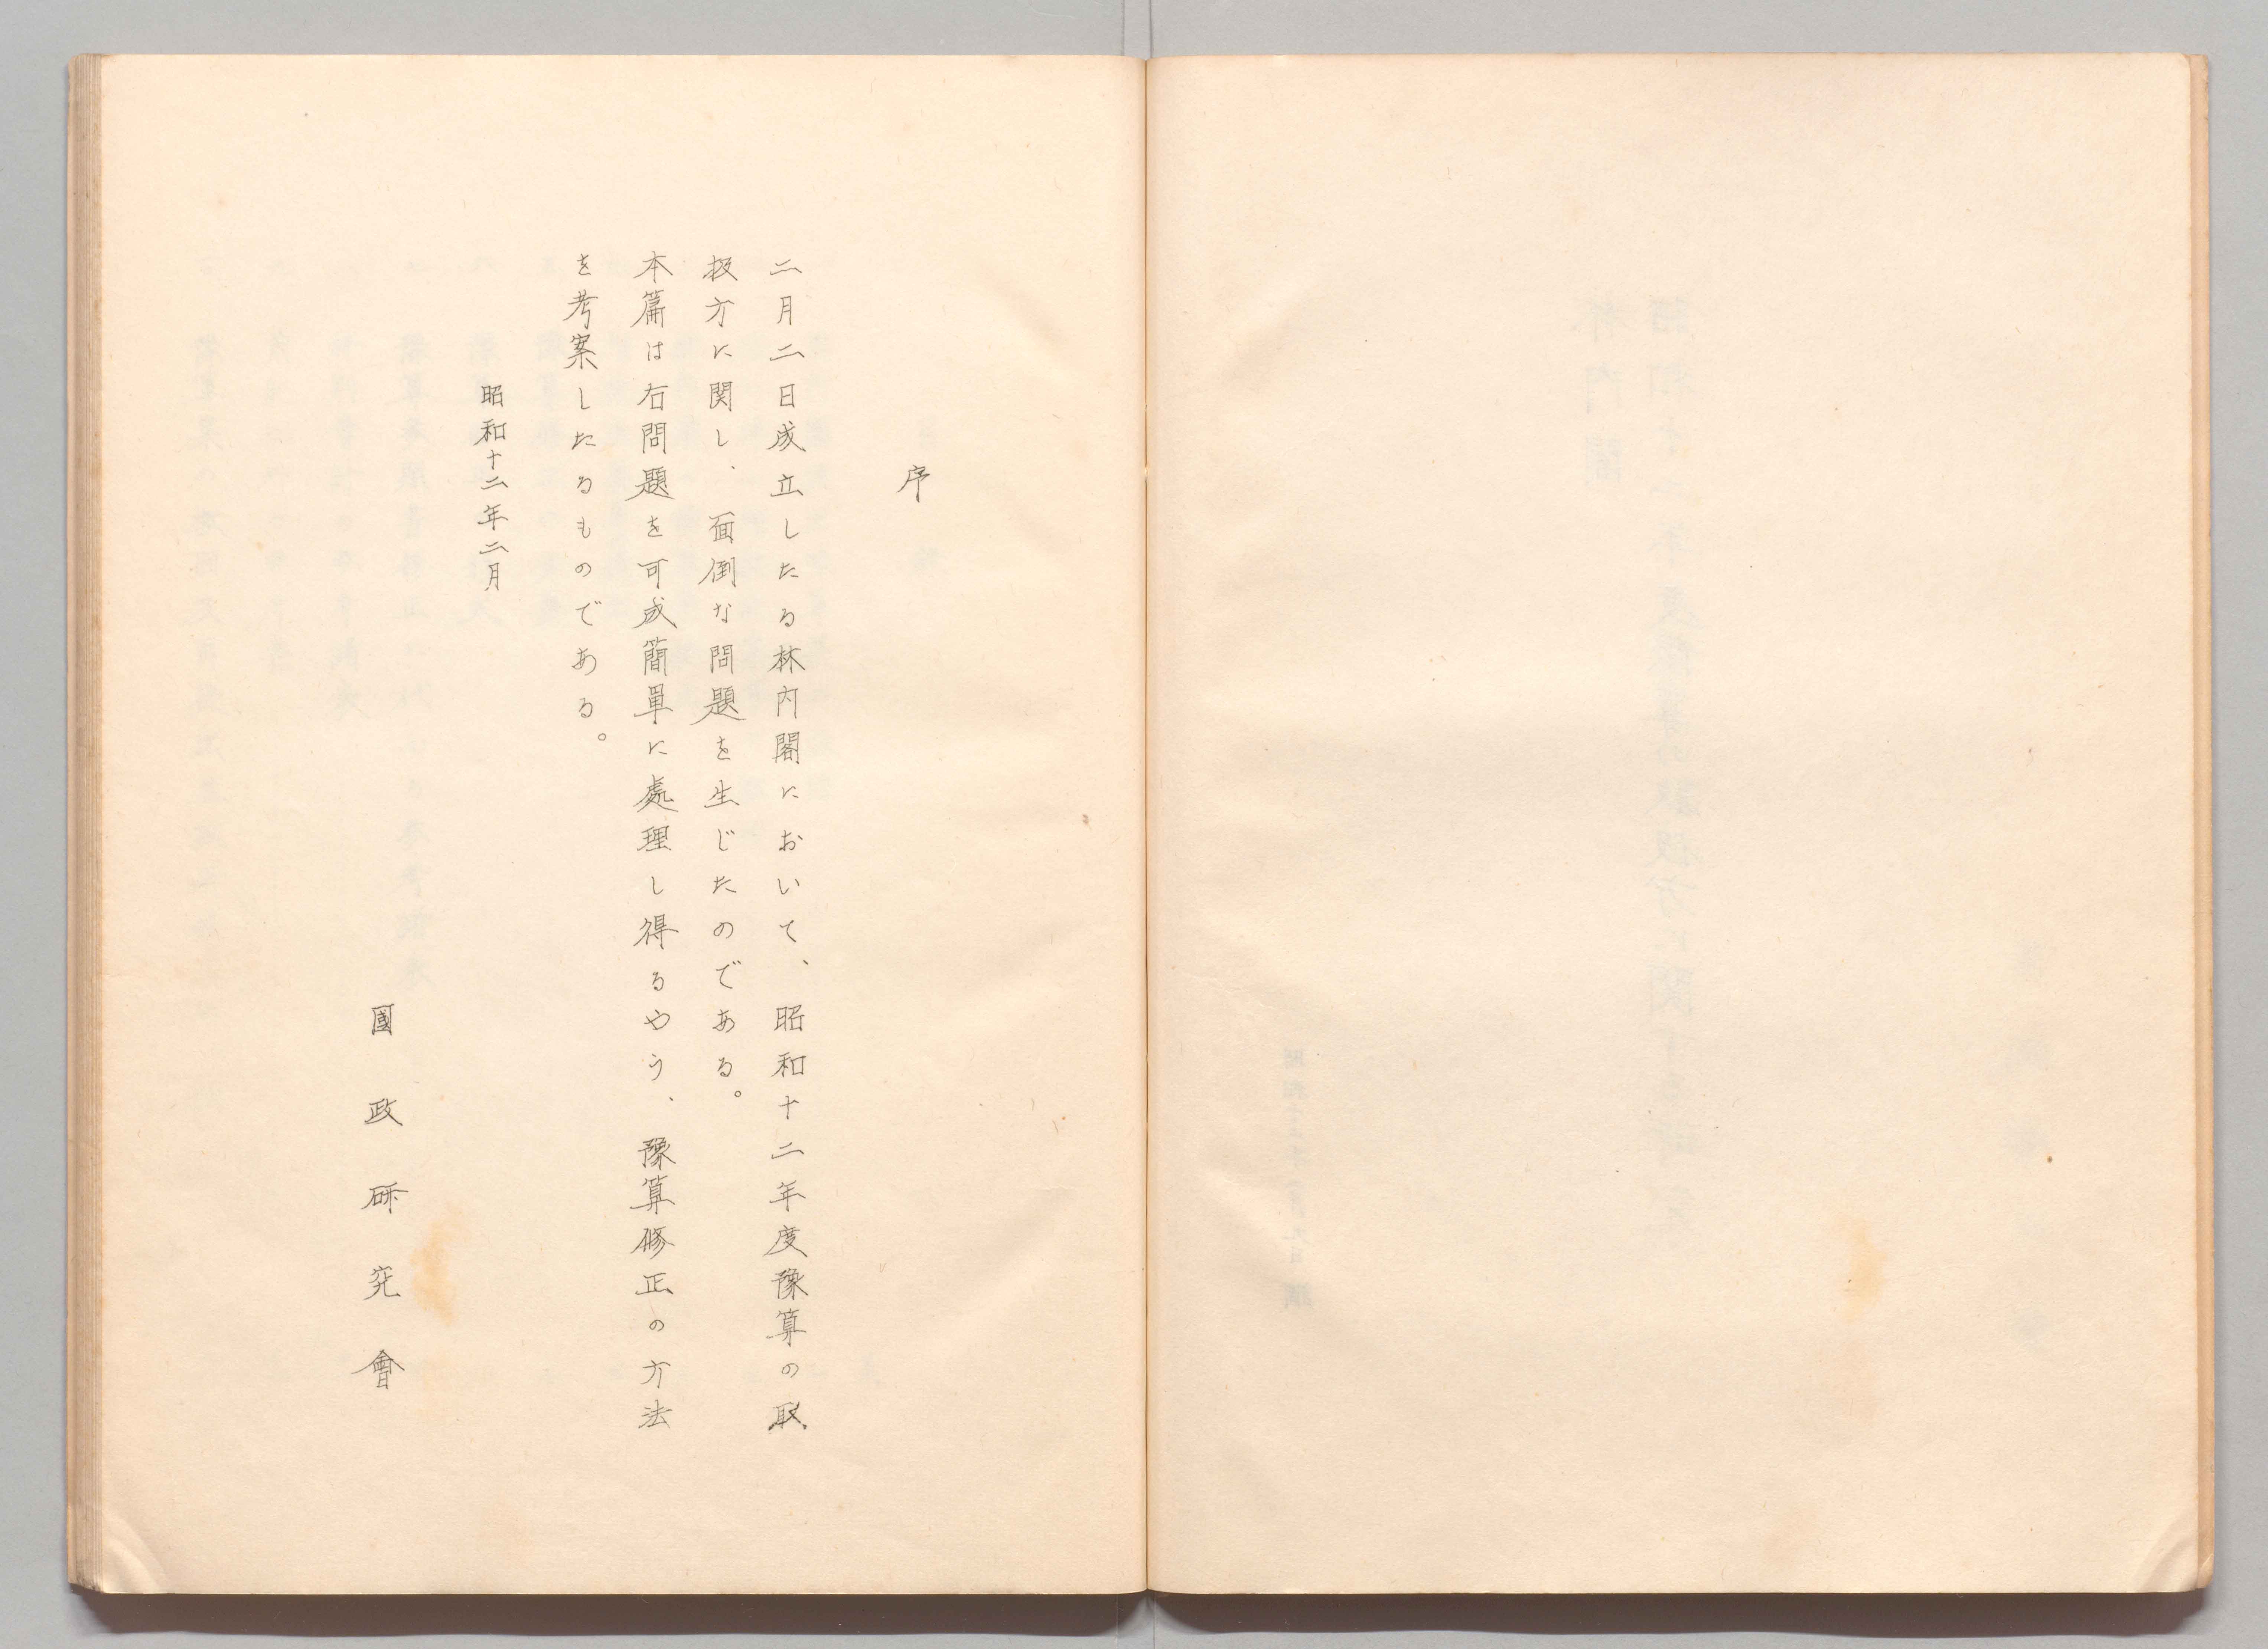 序
二月二日成立したる林内閣において、昭和十二年度豫算の取
扱方に関し、面倒な問題を生じたのである。
本篇は右問題を可成簡單に處理し得るやう、豫算修正の方法
を考案したるものである。
昭和十二年二月
國政研究會